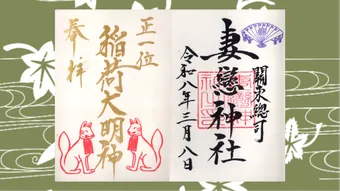 關東總可
妻戀神社
令和八年三月八日
正一位
稲荷大明神
奉拝